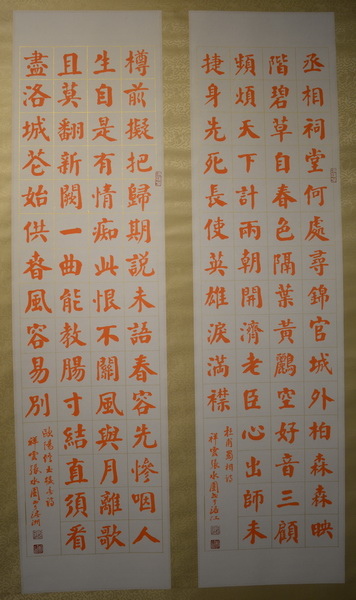 丞相祠堂何處尋錦官城外柏森森映
階碧草自春色隔葉黃鸝空好音三顧
頻煩天下計兩朝開濟老臣心出師未
捷身先死長使英雄淚滿襟
杜甫蜀相詩
祥雲張永國書
樽前擬把歸期説未語春容先慘咽人
生自是有情痴此恨不關風與月離歌
且莫翻新闋一曲能教腸寸結直須看
盡洛城花始供春風容易別
歐陽修玉樓春
祥雲張永國書